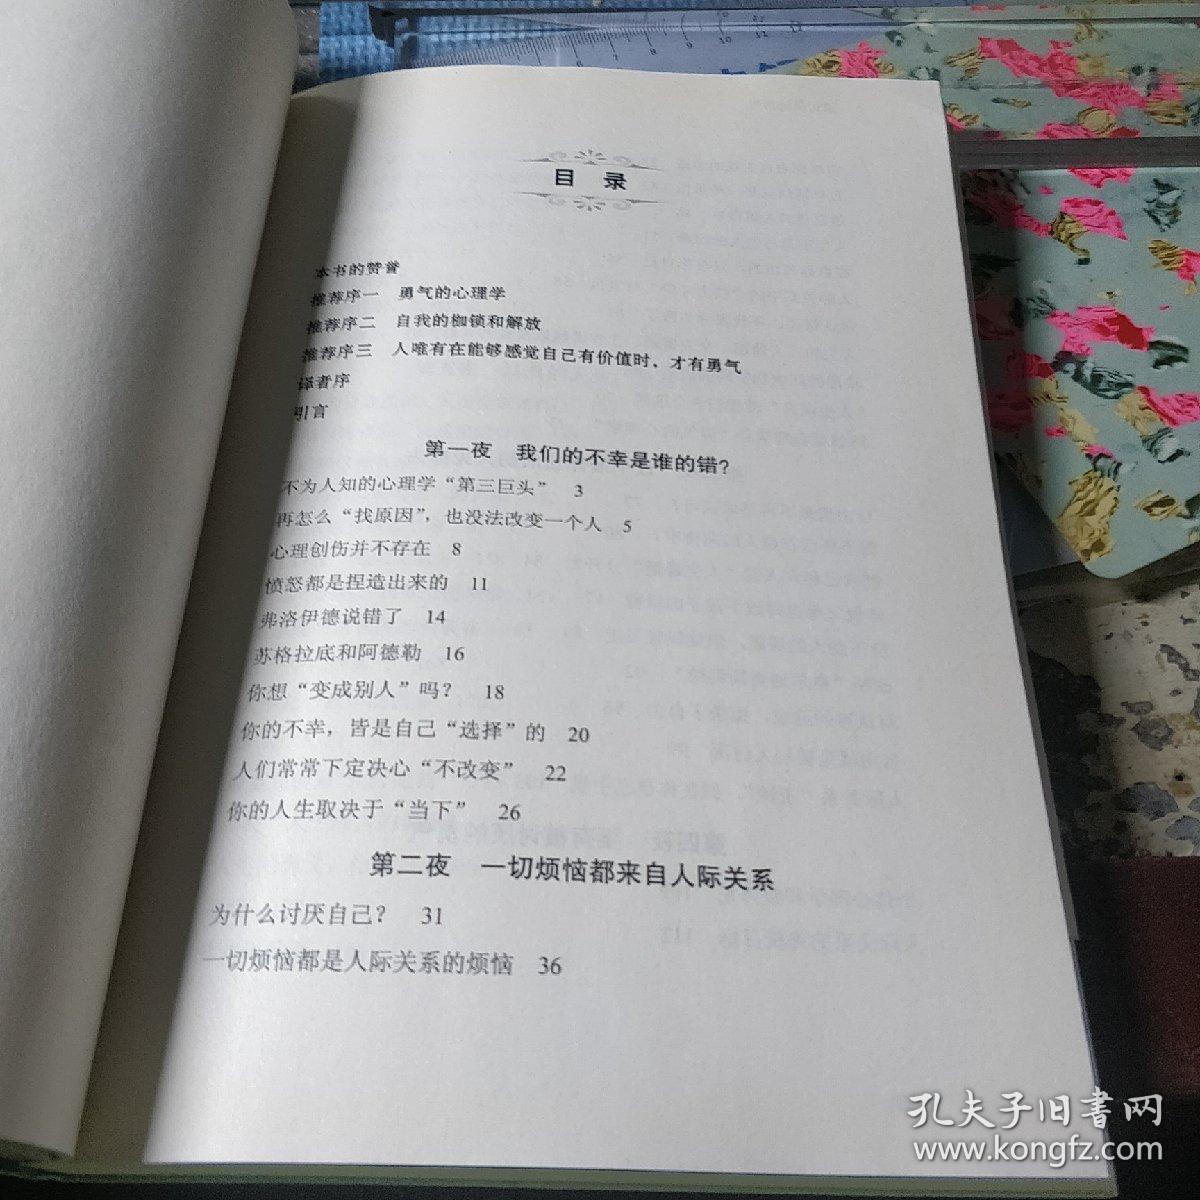 目 录
本书的赞誉
推荐序一 勇气的心理学
推荐序二 自我的枷锁和解放
推荐序三 人唯有在能够感觉自己有价值时,才有勇气
译者序
引言
第一夜 我们的不幸是谁的错?
不为人知的心理学“第三巨头” 3
再怎么“找原因”,也没法改变一个人 5
心理创伤并不存在 8
愤怒都是捏造出来的 11
弗洛伊德说错了 14
苏格拉底和阿德勒 16
你想“变成别人”吗? 18
你的不幸,皆是自己“选择”的 20
人们常常下定决心“不改变” 22
你的人生取决于“当下” 26
第二夜 一切烦恼都来自人际关系
为什么讨厌自己? 31
一切烦恼都是人际关系的烦恼 36
孔夫子旧书网
www.kongfz.com